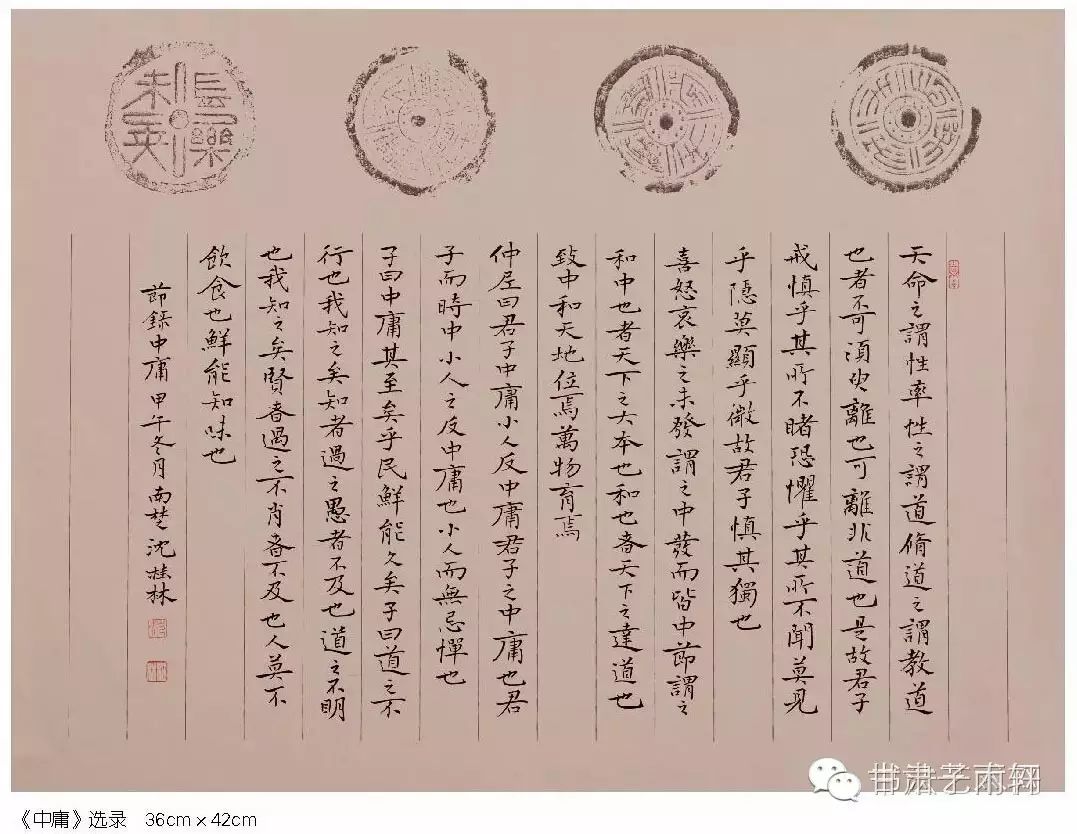 長樂未央
天命之謂性率性之謂道脩道之謂教道
也者不可須臾離也可離非道也是故君子
戒慎乎其所不睹恐懼乎其所不聞莫見
乎隱莫顯乎微故君子慎其獨也
喜怒哀樂之未發謂之中發而皆中節謂之
和中也者天下之大本也和也者天下之達道也
致中和天地位焉萬物育焉
仲尼曰君子中庸小人反中庸君子之中庸也君
子而時中小人之反中庸也小人而無忌憚也
子曰中庸其至矣乎民鮮能久矣子曰道之不
行也我知之矣知者過之愚者不及也道之不明
也我知之矣賢者過之不肖者不及也人莫不
飲食也鮮能知味也
節錄中庸甲午冬月南楚沈桂林
甘肃雨轩
《中庸》选录 36cm×42cm